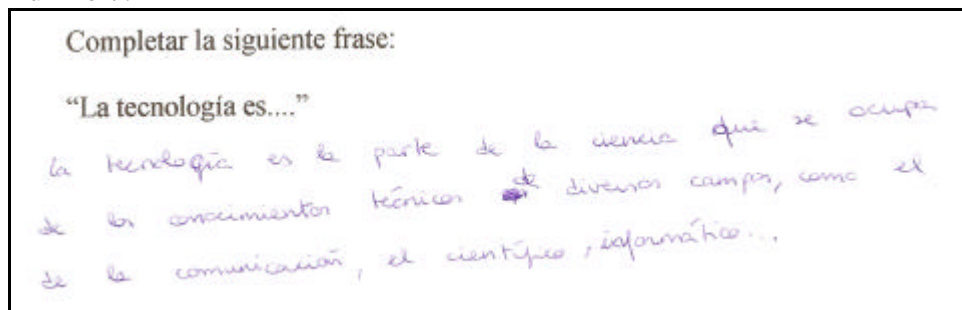 Completar la siguiente frase:
“La tecnología es....”
La tecnología es la parte de la ciencia que se ocupa
de los conocimientos técnicos de diversos campos, como el
de la comunicación, el científico, informático...